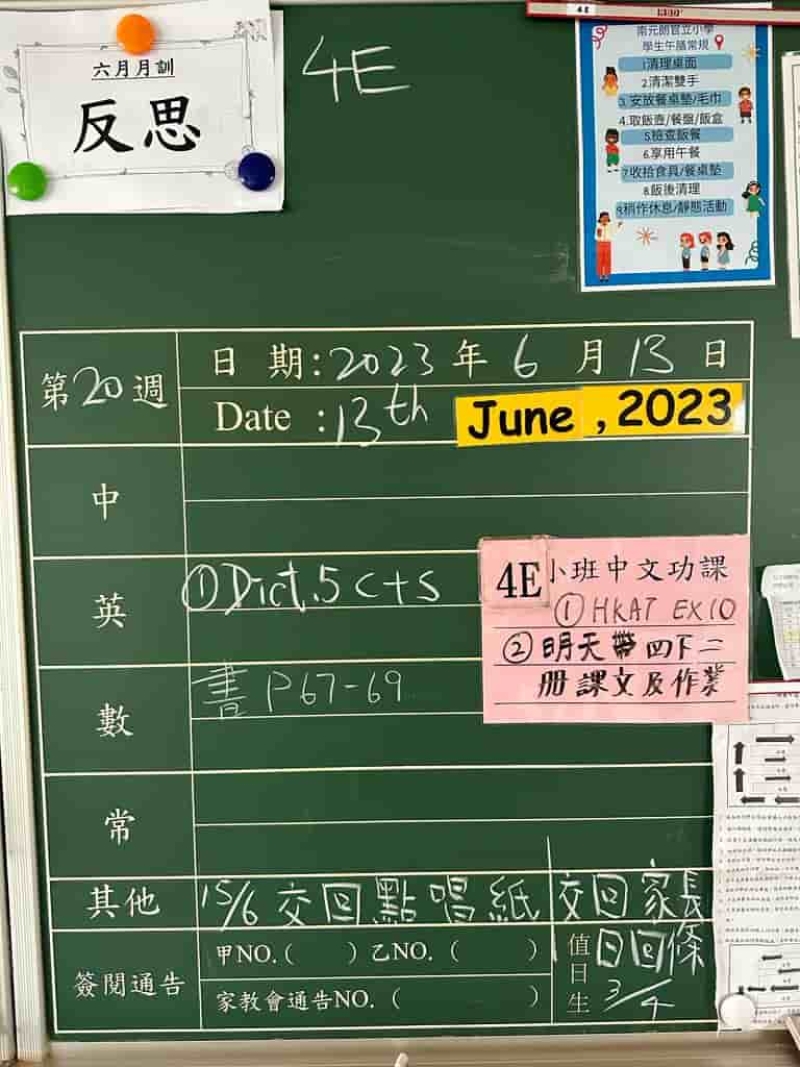 六月月訓
反思
4E
4E
南元朗官立小學
學生午膳常規
1清理桌面
2.清潔雙手
3.安放餐桌墊/毛巾
4.取飯壺/餐盤/飯盒
5檢查飯餐
6.享用午餐
7收拾食具/餐桌墊
8飯後清理
9稍作休息/靜態活動
第20週
日 期:2023年6月13日
Date :13th June ,2023
中
英 ①Dict.5 C+S
4E小班中文功課
①HKAT EX10
②明天帶四下二
冊課文及作業
數 書 P67-69
常
其他 15/6 交回點唱紙 交回家長
日回條
簽閱通告 甲NO.( ) 乙NO.( )
家教會通告NO.( )
值日生 3/4